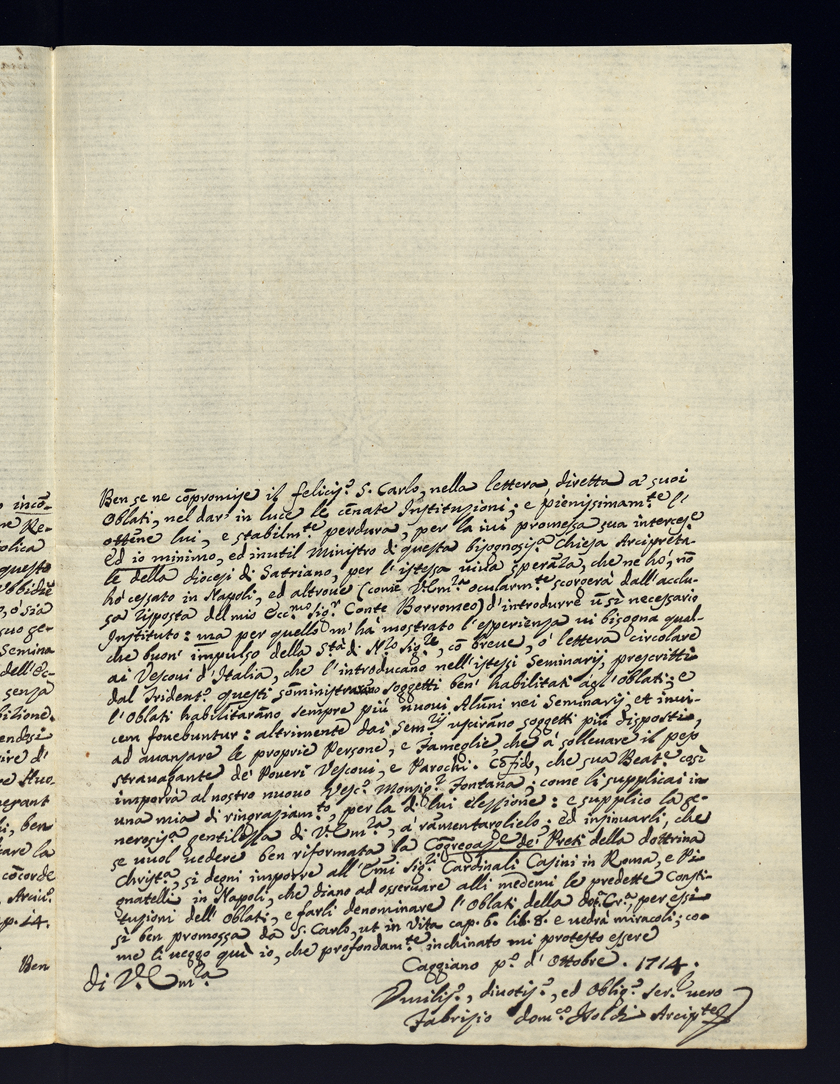 incõ-
ne Re-
olica
questo
obidiẽ
, ò sia
suo ge-
Semina
dell'Ec-
senza
bizione.
endesi
ire d'
e stuo-
negant
li, ben
care la
cõcorde
Arciu.°
ap. 14.
Ben
Ben se ne cõpromise il feliciss.° S. Carlo, nella lettera diretta a' suoi
Oblati, nel dar' in luce le cẽnate Instituzioni; e pienissimam.te l'
ottẽne lui, e stabilm.te perdura, per la iui promessa sua intercess.e
Ed io minimo, ed inutil Ministro di questa bisognosiss.a Chiesa Arcipreta-
le della diocesi di Satriano, per l'istessa uiua sperãza, che ne hò, nõ
hò cessato in Napoli, ed altroue (come V. Em.za ocularm.te scorgerà dall'acclu-
sa risposta del mio Ecc.mo Sig.r Conte Borromeo) d'introdurre ũ sì necessario
Instituto: ma per quello m'hà mostrato l'esperienza ui bisogna qual-
che buon' impulso della S.tà di N.ro Sig.re, cõ breue, ò lettera circolare
ai Vescoui d'Italia, che l'introducano nell'istessi Seminarij, prescritti
dal Trident.° questi sõministrano soggetti ben' habilitati agl'Oblati; e
l'Oblati habilitarãno sempre più nuoui Alũni nei Seminarij, et inui-
cem fouebuntur: altrimente dai Sem.rij uscirãno soggetti più disposti,
ad auanzare le proprie Persone, e Fameglie, che à solleuare il peso
strauagante de' Poueri Vescoui, e Parochi. Cõfido, che sua Beat.e così
imporrà al nostro nuouo Vesc.° Monsig.r Fontana, come li supplicai in
una mia di ringraziam.to, per la di lui elezzione: e supplico la ge-
nerosiss.a gentilezza di V. Em.za, à ramentarolielo; ed insinuarli, che
se uuol uedere ben riformata la Cõgregaz.e de' Preti della dottrina
Christ.a, si degni imporre all'Emi Sig.ri Cardinali Casini in Roma, e Pi-
gnatelli in Napoli, che diano ad osseruare alli medemi le predette Consti-
tuzioni dell'Oblati, e farli denominare l'Oblati della dot. Cr.a; per essi
sì ben promossa da S. Carlo, ut in Vita cap. 6. lib. 8. e uedrà miracoli; co-
me li ueggo quì io, che profondam.te inchinato mi protesto essere
di V. Em.za
Caggiano p.° d'Ottobre. 1714.
Vmiliss.°, diuotiss.°, ed Oblig.° ser.r uero
Fabrizio dom.co Isoldi Arcip.te